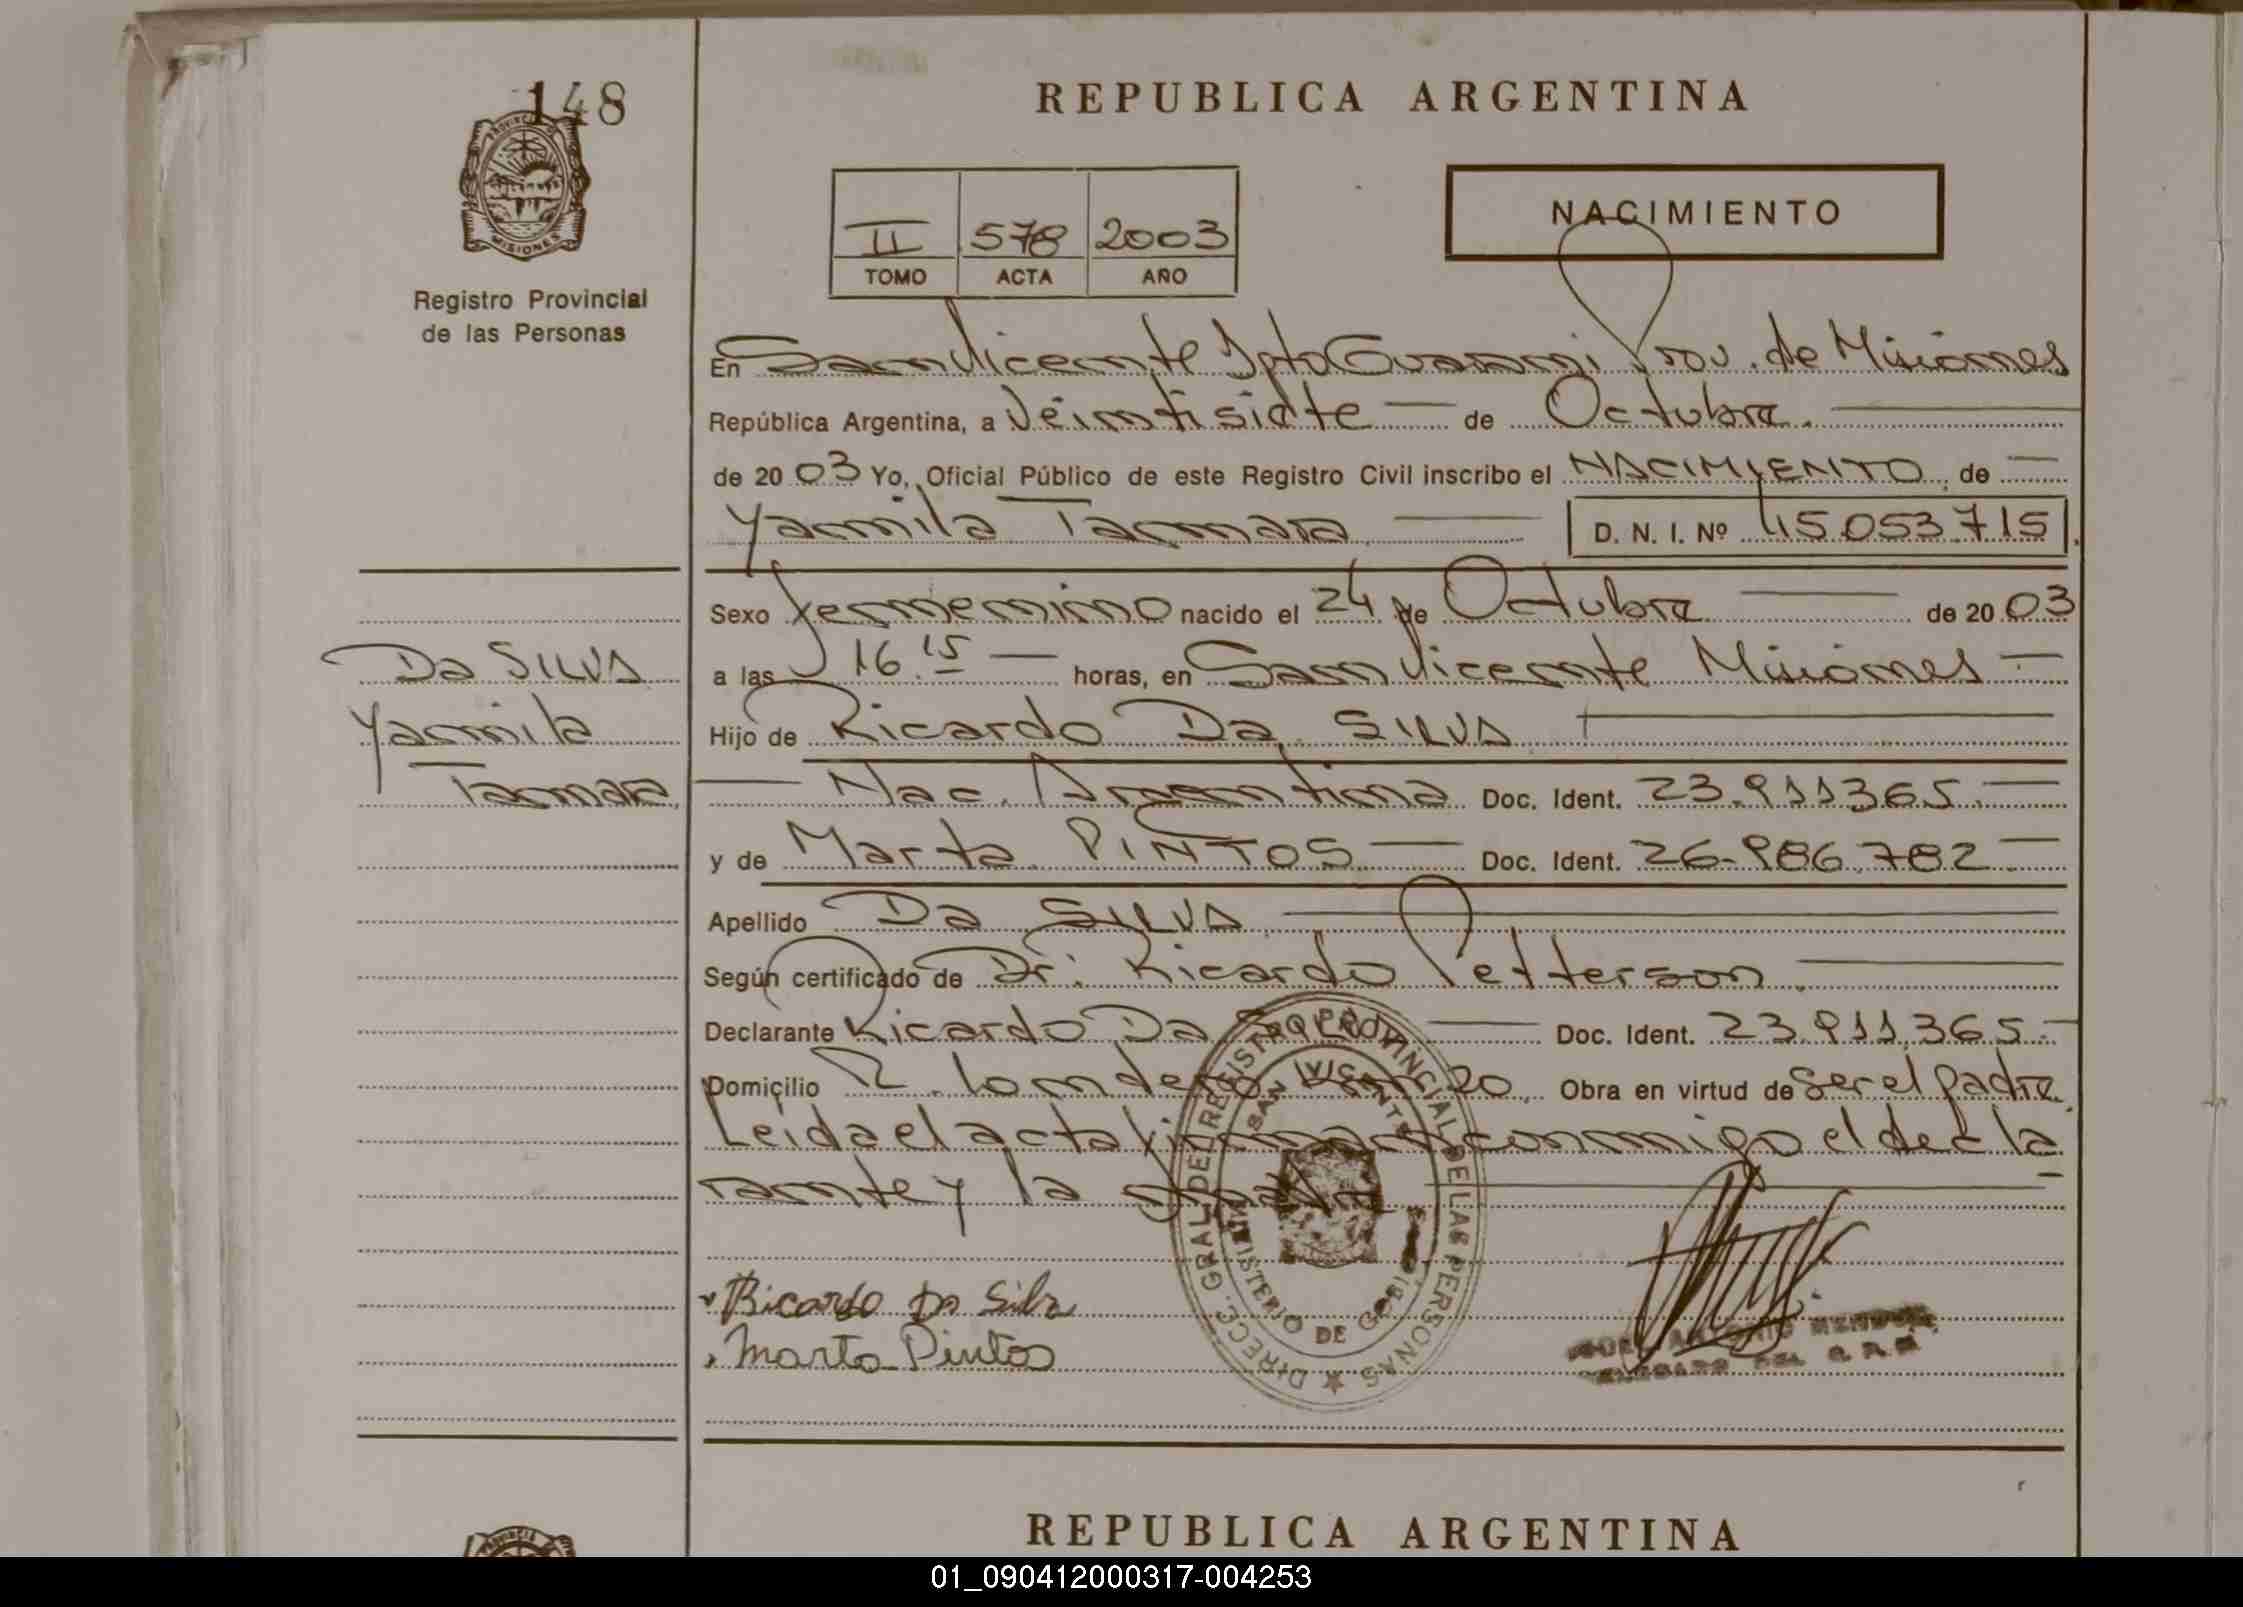 148
PROVINCIA DE
MISIONES
Registro Provincial
de las Personas
REPUBLICA ARGENTINA
II 578 2003
TOMO ACTA AÑO
NACIMIENTO
En San Vicente Dpto Guarani Prov. de Misiones
República Argentina, a Veintisiete — de Octubre.
de 20 03 Yo, Oficial Público de este Registro Civil inscribo el NACIMIENTO de —
Yamila Tamara — D. N. I. Nº 45.053.715
Sexo femenino nacido el 24 de Octubre — de 20 03
a las 16.15 — horas, en San Vicente Misiones —
Da SILVA
Hijo de Ricardo Da SILVA
Yamila
Tamara
— Nac. Argentina Doc. Ident. 23.911365.—
y de Marta PINTOS — Doc. Ident. 26.986.782 —
Apellido Da SILVA
Según certificado de Dr. Ricardo Petterson.
Declarante Ricardo Da — Doc. Ident. 23.911.365.—
Domicilio 20. Obra en virtud de Ser el padre.
Leida el acta firman conmigo el decla
rante y la
DIRECC. GRAL. DEL REGISTRO PROVINCIAL DE LAS PERSONAS
SAN VICENTE
MINISTERIO DE GOBIERNO
Ricardo Da Silva
Marta Pintos
ANTONIO
REPUBLICA ARGENTINA
01_090412000317-004253